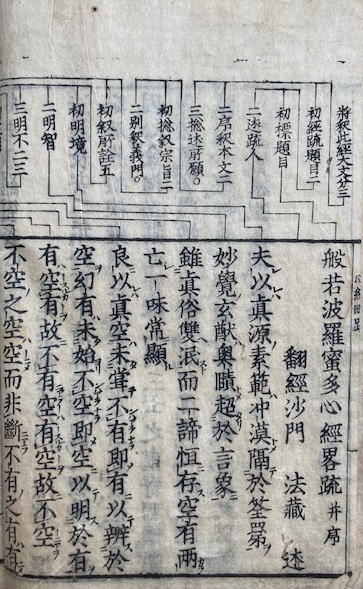 將釈此經大文分三
初經疏題目二
初標題目
二述疏人
二序釈本文二
三捴述所願
初捴叙宗旨二
二別釈義門
初叙所詮五
初明境
二明智
三明不二三
般若波羅蜜多心經畧疏并序
翻經沙門 法藏 述
夫以真源素範冲漠隔於筌罤
妙覺玄猷奥賾超於言象
雖真俗雙泯而二諦恒存空有兩
亡一味常顯
良以真空未甞不有即有以辨於
空幻有未始不空即空以明於有
有空有故不有空有空故不空
不空之空空而非斷不有之有有